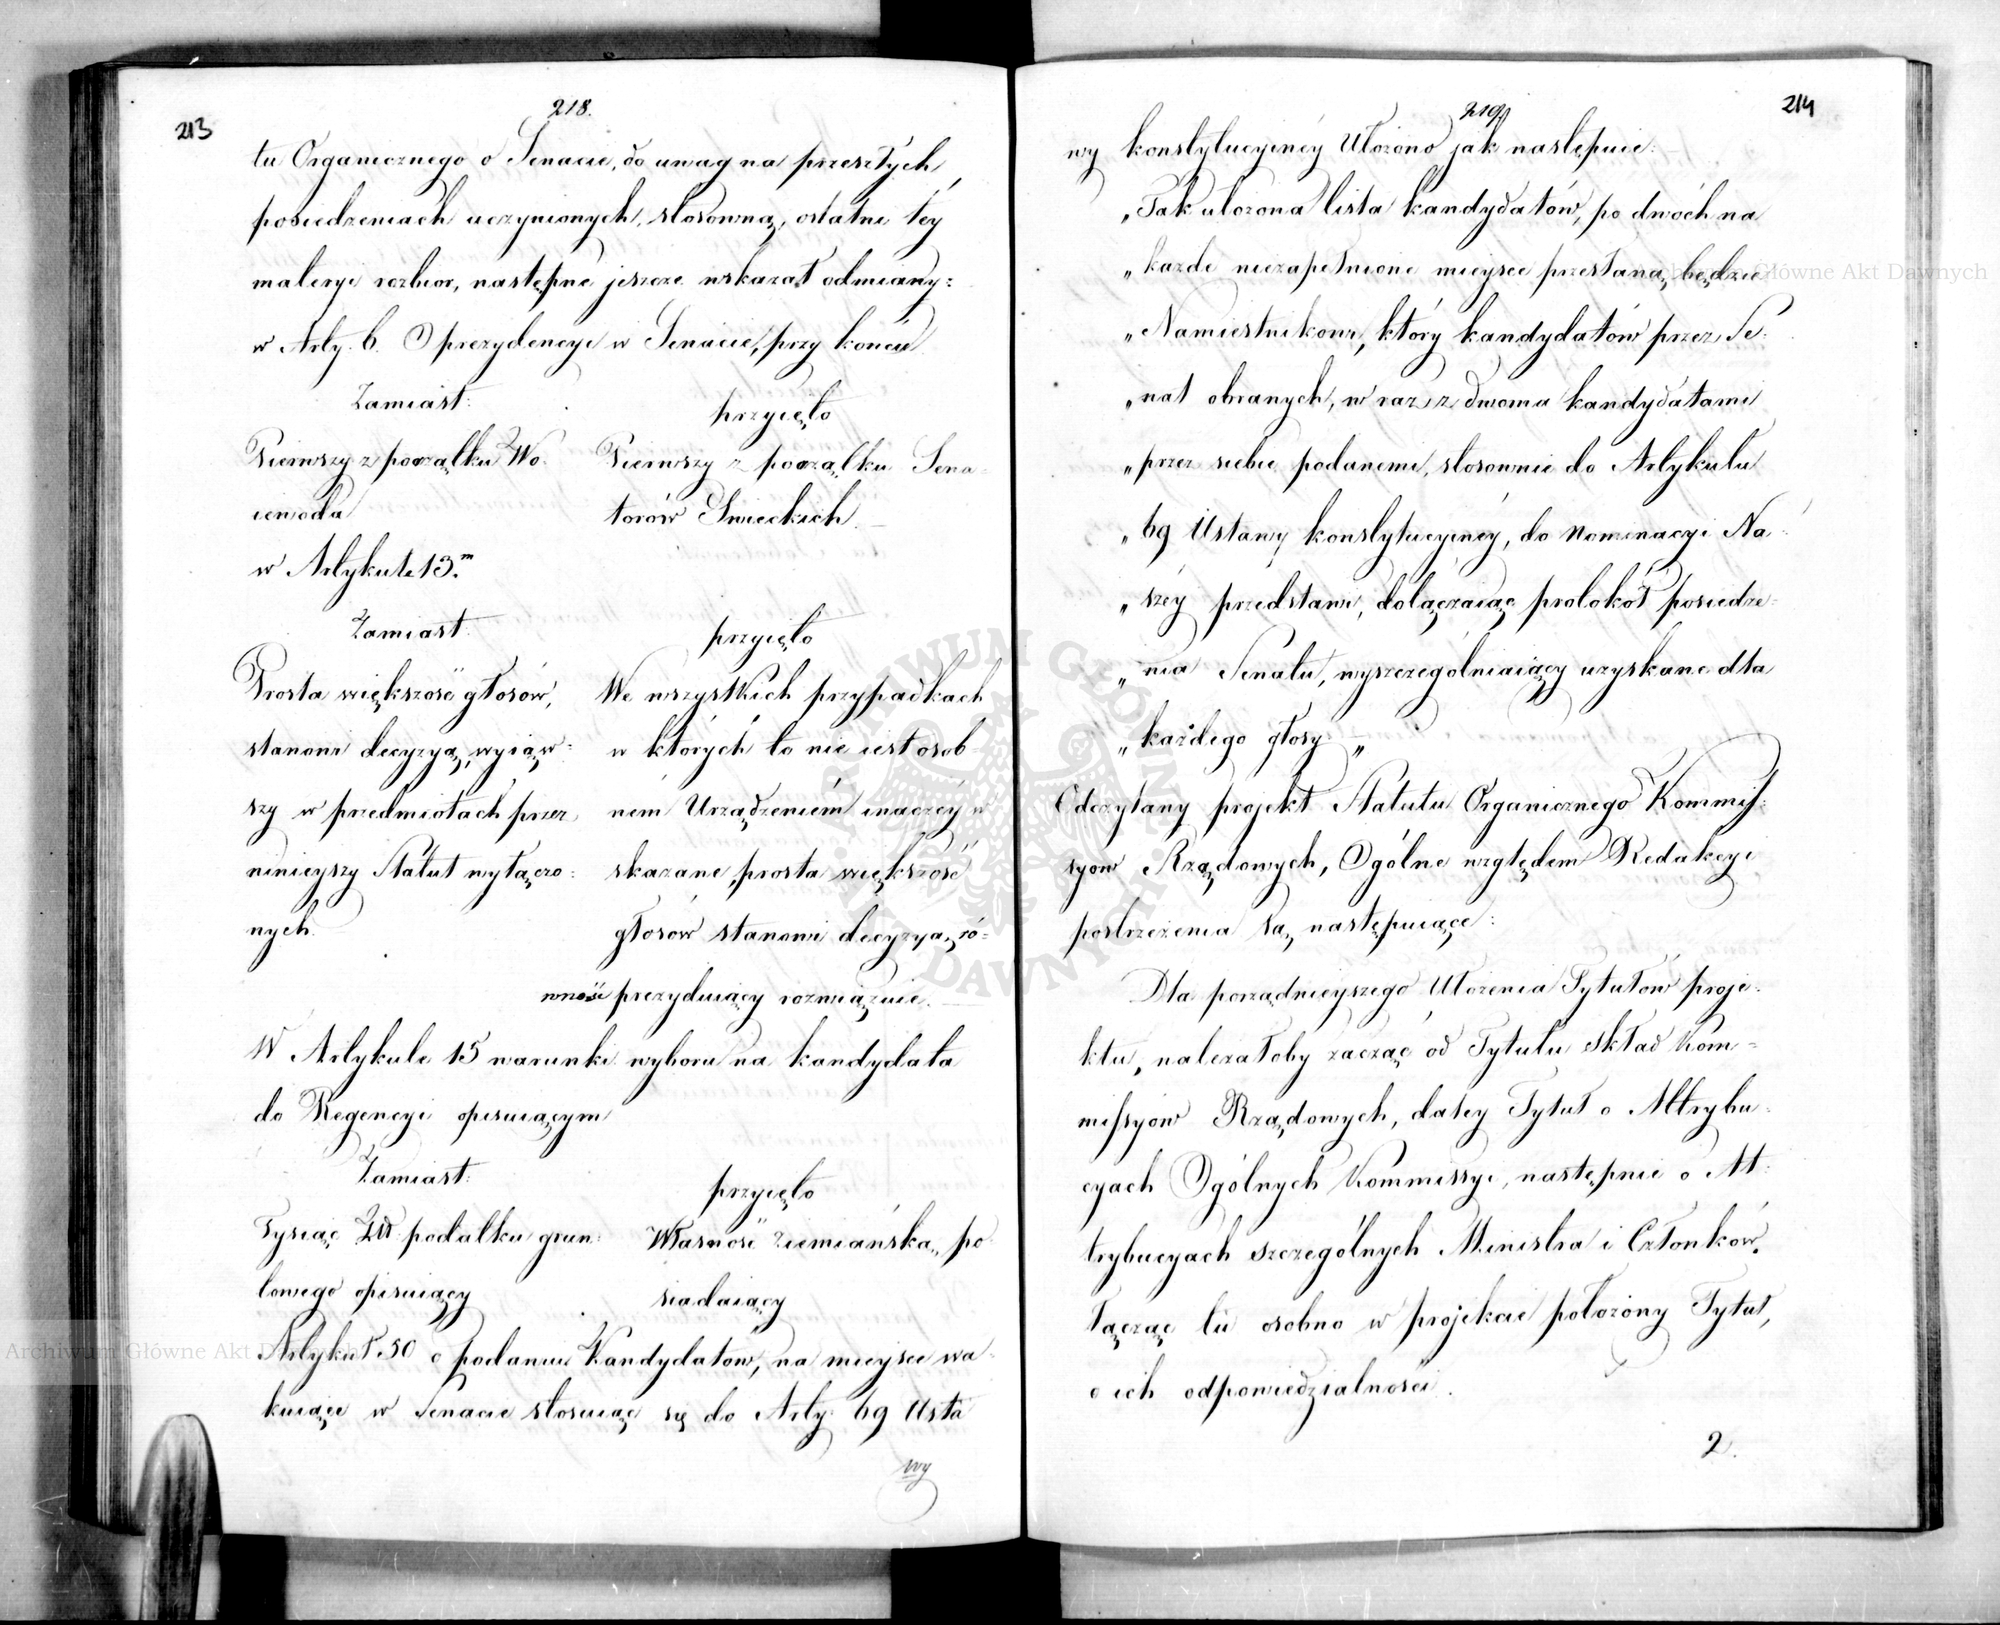 213
218.
tu Organicznego o Senacie, do uwag na przeszłych
posiedzeniach uczynionych, stosowną, ostatni tey
materyi rozbior, następne jeszcze wskazał odmiany:
w Arty. 6. O prezydencyi w Senacie, przy końcu
Zamiast:
przyięto
Pierwszy z porządku Wo-
iewoda
Pierwszy z porządku Sena-
torów Swieckich.
w Artykule 13.m
Zamiast:
przyięto
Prosta większość głosów,
stanowi decyzyą, wyiąw-
szy w przedmiotach przez
ninieyszy Statut wyłączo-
nych.
We wszystkich przypadkach
w których to nie iest osob-
nem Urządzeniem inaczéy w
skazane, prosta większość
głosów stanowi decyzyą, ró-
wność prezyduiący rozwiązuie.
W Artykule 15 warunki wyboru na kandydata
do Regencyi opisuiącym
Zamiast:
przyięto
Tysiąc Złł podatku grun-
towego opisuiący
Własność Ziemiańska, po
siadaiący
Artykuł 50 o podaniu Kandydatów, na mieysce wa-
kuiące w Senacie stosuiąc się do Arty: 69 Usta
wy
214
219
wy konstytucyinéy Ułożono jak następuie:
„Tak ułożona lista kandydatów, po dwóch na
„każde niezapełnione mieysce przesłaną będzie
„Namiestnikowi, który kandydatów przez Se-
„nat obranych, w raz z dwoma kandydatami
„przez siebie podanemi, stosownie do Artykułu
„69 Ustawy konstytucyinéy, do Nominacyi Na-
„széy przedstawi, dołączaiąc protokół posiedze-
„nia Senatu, wyszczególniaiący uzyskane dla
„każdego głosy „
Odczytany projekt Statutu Organicznego Kommis-
syow Rządowych, Ogólne względem Redakcyi
postrzeżenia są, następuiące:
Dla porządnieyszego Ułożenia Tytułów proje-
ktu, należałoby zacząć od Tytułu Skład Kom-
missyów Rządowych, daley Tytuł o Attrybu-
cyach Ogólnych Kommissyi, następnie o At-
trybucyach szczególnych Ministra i Członków,
łącząc tu osobno w projekcie położony Tytuł,
o ich odpowiedzialności.
2.
Archiwum Główne Akt Dawnych
Archiwum Główne Akt Dawnych
ARCHIWUM GŁÓWNE AKT DAWNYCH